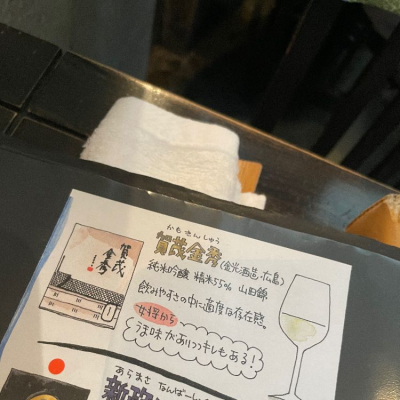 かもきんしゅう
賀茂金秀(金光酒造・広島)
純米吟醸 精米55% 山田錦
飲みやすさの中に適度な存在感。
女将から
うま味がありつつキレもある!
賀茂
金秀
あらまさ なんばーし
新政